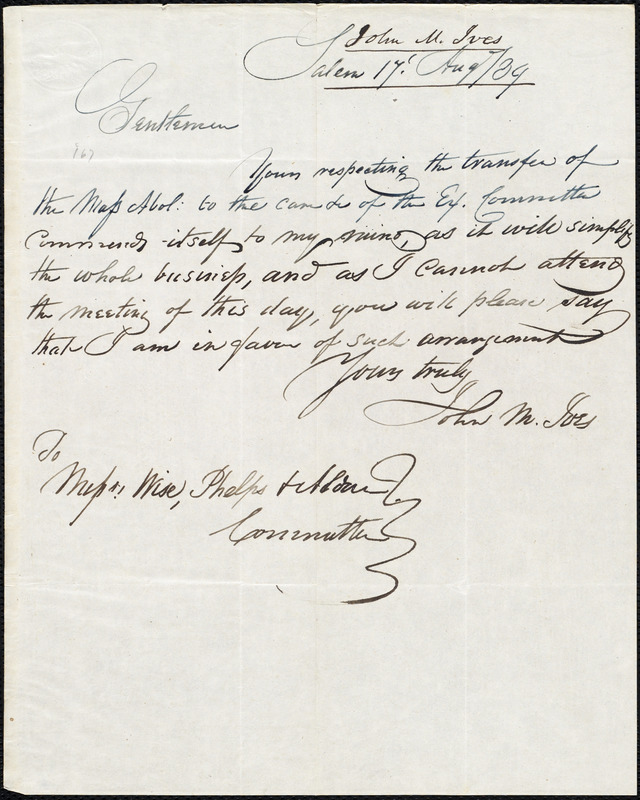 John M. Ives
Salem 17th Aug/39
Gentlemen
Yours respecting the transfer of
the Mass Abol: to the care of the Ex. Committee
commends itself to my mind, as it will simplify
the whole business, and as I cannot attend
the meeting of this day, you will please say
that I am in favor of such arrangement
Yours truly
John M. Ives
To
Messrs. Wise, Phelps &
Committee